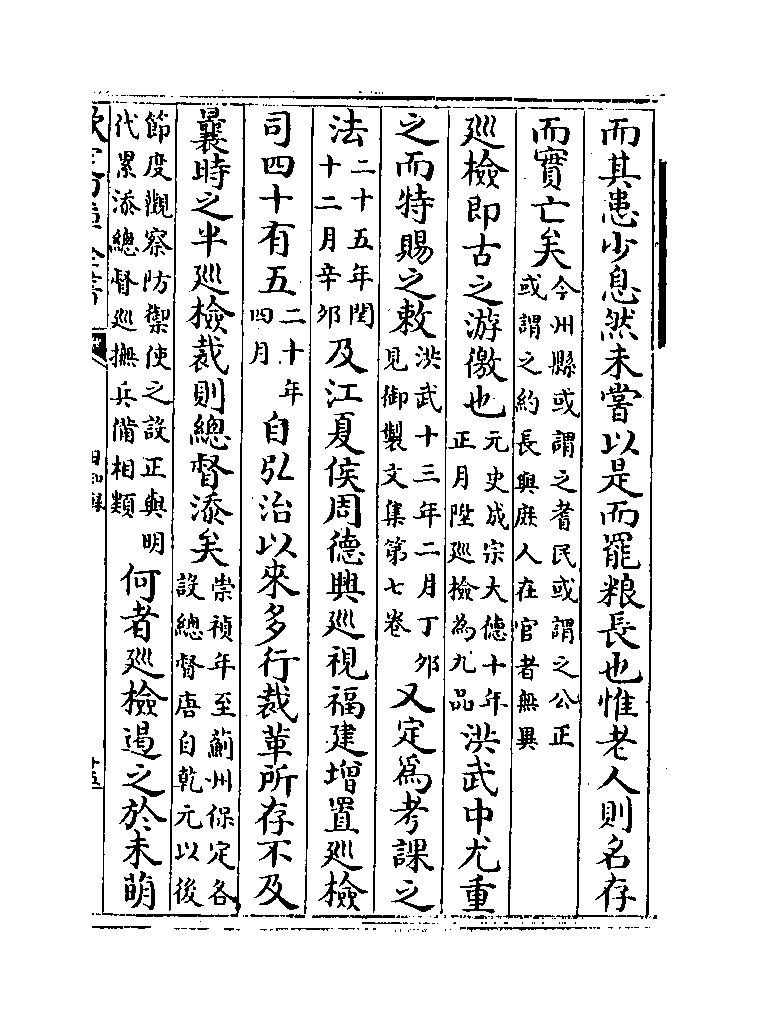 而其患少息然未嘗以是而罷粮長也惟老人則名存
而實亡矣今州縣或謂之耆民或謂之公正或謂之約長與庶人在官者無異
廵檢即古之游徼也元史成宗大德十年正月陞廵檢為九品洪武中尤重
之而特賜之敕洪武十三年二月丁夘見御製文集第七卷又定爲考課之
法二十五年閏十二月辛夘及江夏侯周德興廵視福建增置廵檢
司四十有五二十年四月自弘治以來多行裁革所存不及
曩時之半廵檢裁則總督添矣崇禎年至薊州保定各設總督唐自乾元以後
節度觀察防禦使之設正與明代累添總督廵撫兵備相類何者廵檢遏之於未萌
日知錄